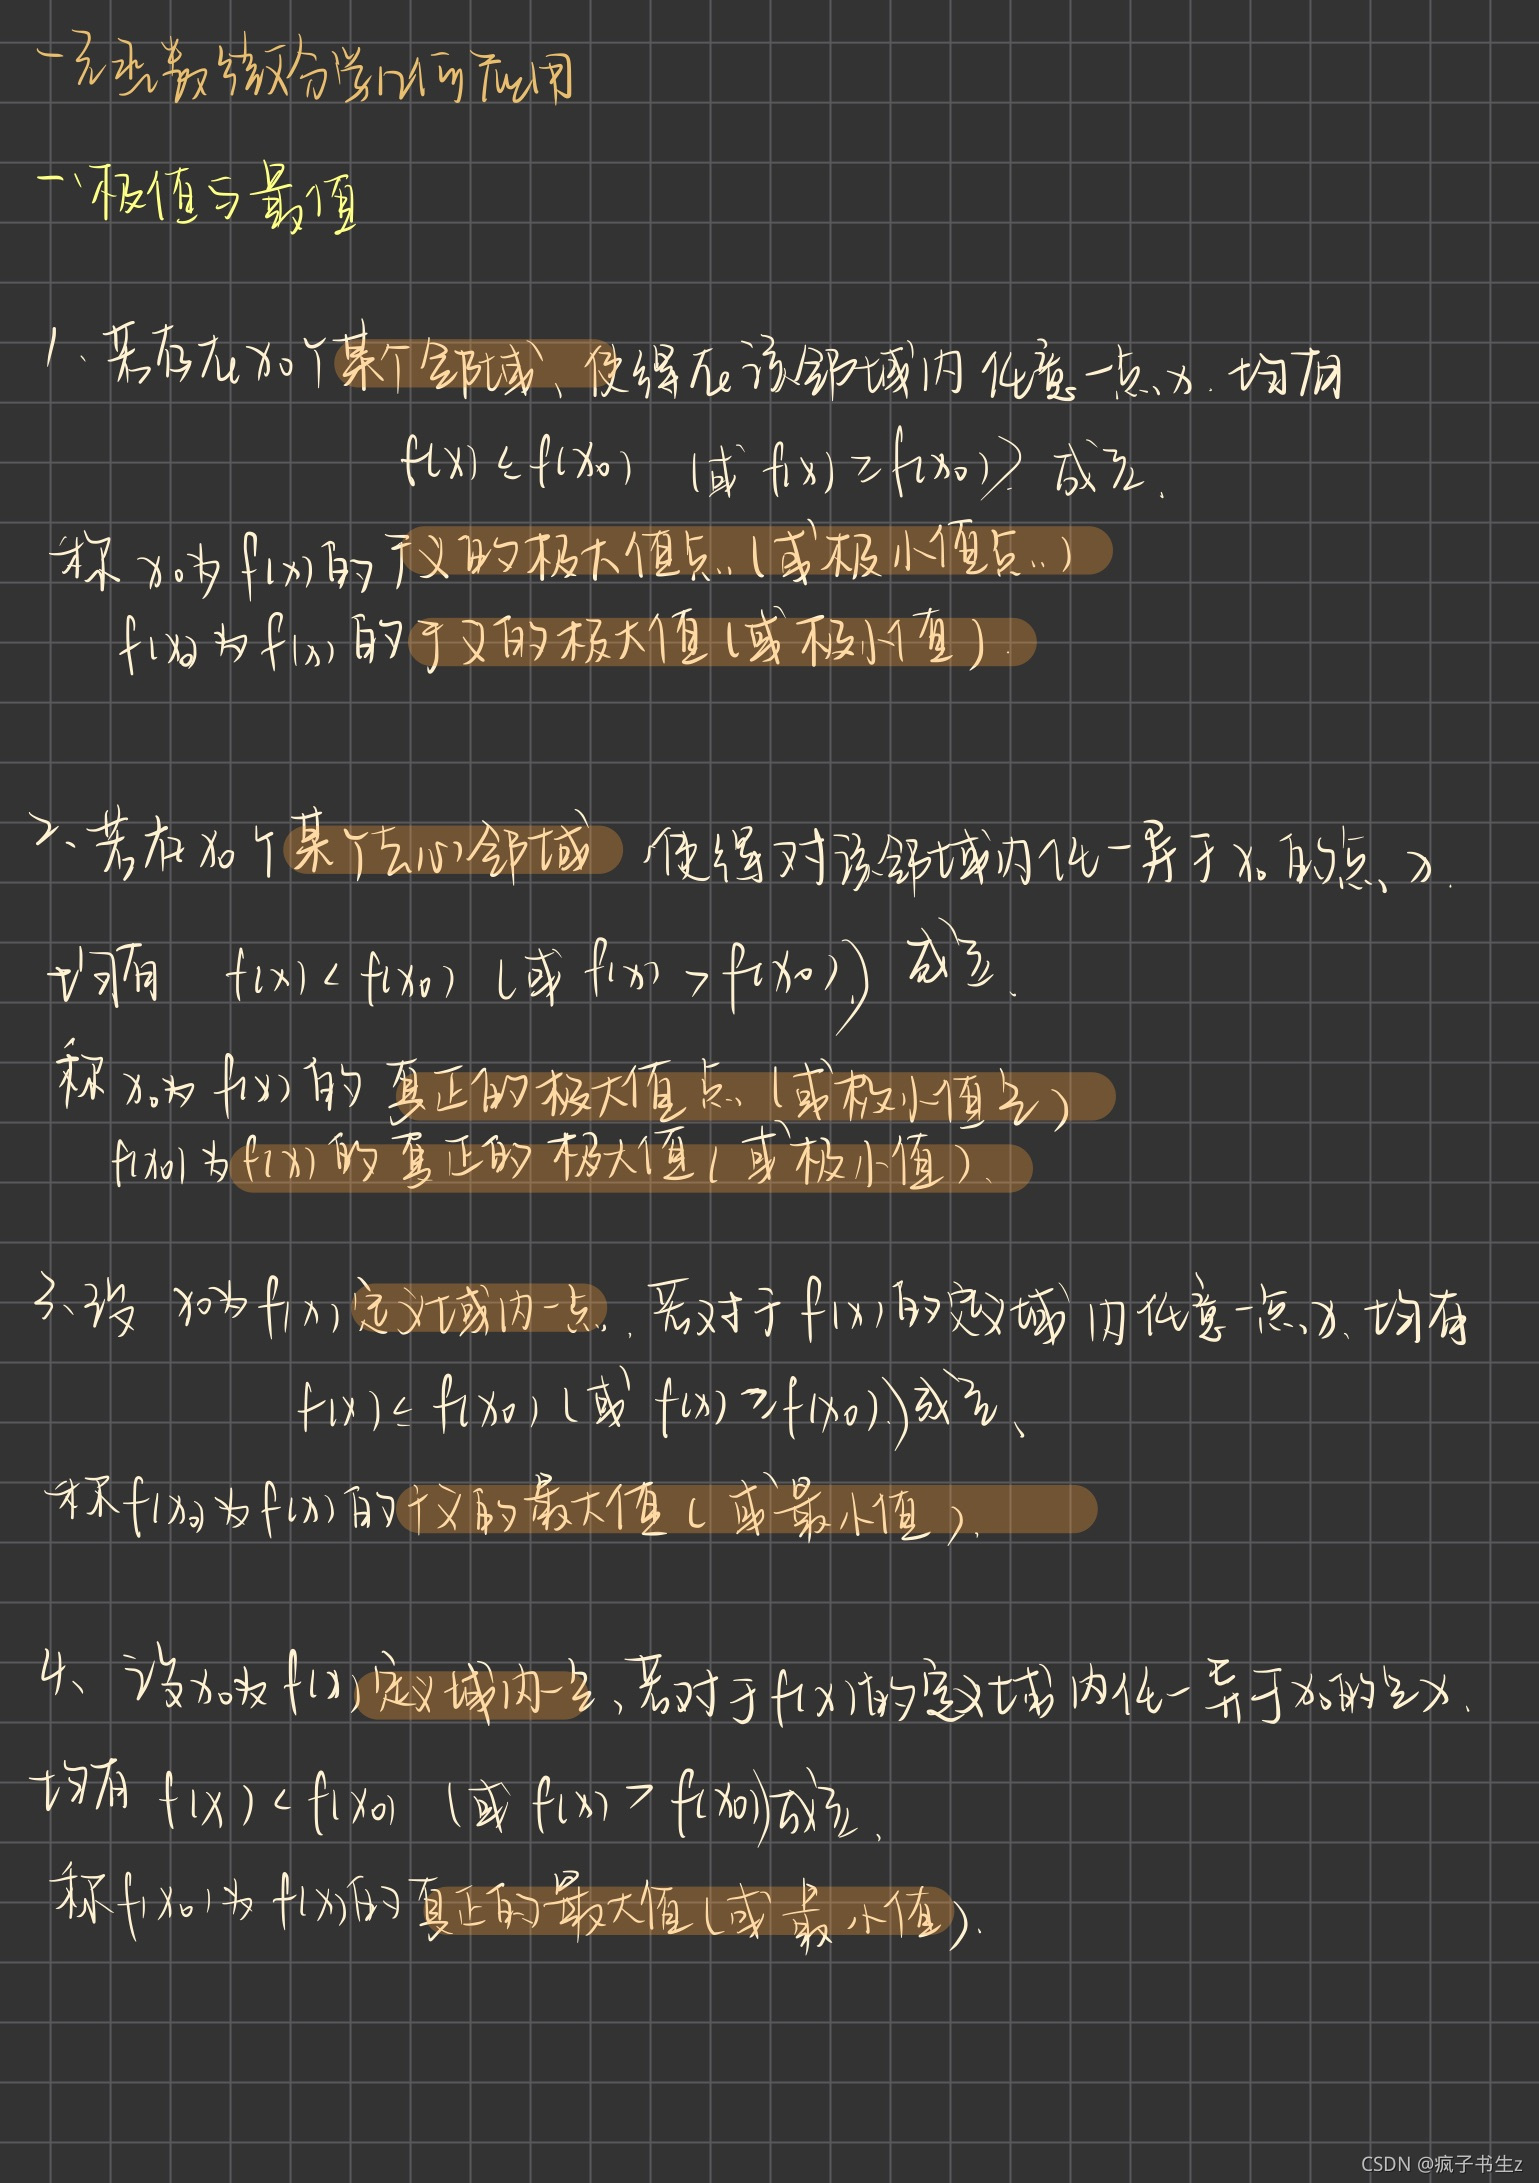 一元函数微分学几何应用
一、极值与最值
1、若存在x₀个某个邻域、使得在该邻域内任意一点x、均有
f(x)≤f(x₀) (或 f(x)≥f(x₀))成立、
称x₀为f(x)的广义的极大值点(或极小值点)
f(x₀)为f(x)的广义的极大值(或极小值).
2、若在x₀个某个去心邻域,使得对该邻域内任一异于x₀的点x.
均有 f(x)<f(x₀) (或 f(x)>f(x₀))成立、
称x₀为f(x)的真正的极大值点(或极小值点)
f(x₀)为f(x)的真正的极大值(或极小值)、
3、设x₀为f(x)定义域内一点,若对于f(x)的定义域内任意一点x、均有
f(x)≤f(x₀)(或 f(x)≥f(x₀))成立、
称f(x₀)为f(x)的广义的最大值(或最小值).
4、设x₀为f(x)定义域内一点、若对于f(x)的定义域内任一异于x₀的点x、
均有 f(x)<f(x₀) (或 f(x)>f(x₀))成立、
称f(x₀)为f(x)的真正的最大值(或最小值).
CSDN @疯子书生z